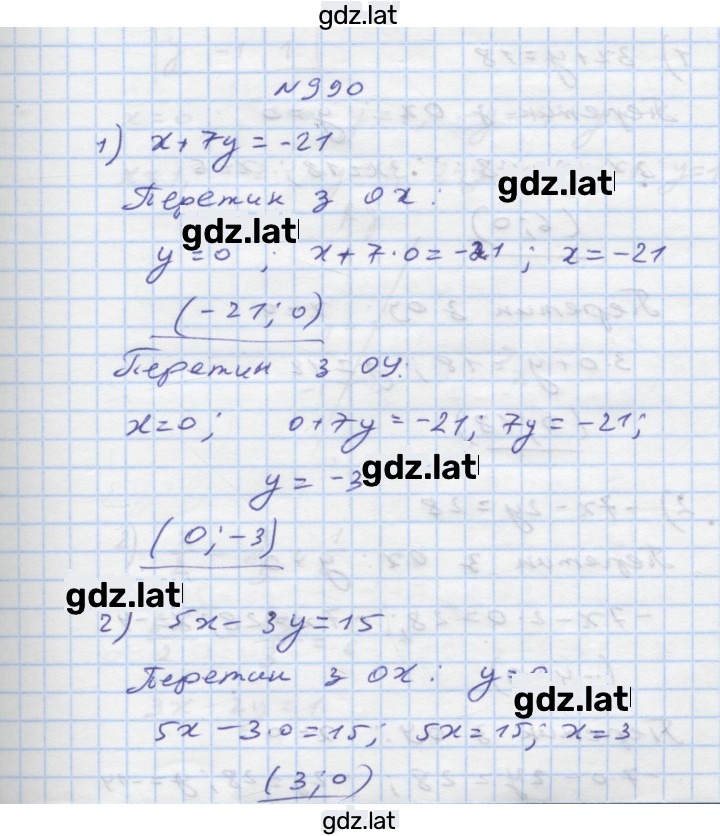 gdz.lat
N990
1) x+7y=-21
Перетин з OX:
gdz.lat
gdz.lat
y=0; x+7·0=-21; x=-21
(-21;0)
Перетин з OY:
x=0; 0+7y=-21; 7y=-21;
y=-3
gdz.lat
(0;-3)
gdz.lat
2) 5x-3y=15
Перетин з OX: y=0
gdz.lat
5x-3·0=15; 5x=15; x=3
(3;0)
gdz.lat